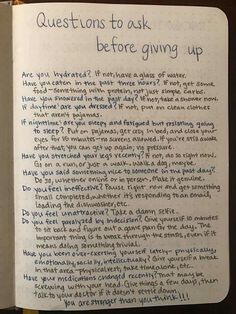 Questions to ask
before giving up
Are you hydrated? If not, have a glass of water.
Have you eaten in the past three hours? If not, get some
food — something with protein, not just simple carbs.
Have you showered in the past day? If not, take a shower now.
If daytime: are you dressed? If not, put on clean clothes
that aren't pajamas.
If nighttime: are you sleepy and fatigued but resisting going
to sleep? Put on pajamas, get cozy in bed, and close your
eyes for 15 minutes — no screens allowed. If you're still awake
after that, you can get up again; no pressure.
Have you stretched your legs recently? If not, do so right now.
Go on a run, or just a walk. Walk a dog, maybe.
Have you said something nice to someone in the past day?
Do so, whether online or in person. Make it genuine.
Do you feel ineffective? Pause right now and get something
small completed, whether it's responding to an email,
loading the dishwasher, etc.
Do you feel unattractive? Take a damn selfie.
Do you feel paralyzed by indecision? Give yourself 10 minutes
to sit back and figure out a game plan for the day. The
important thing is to break through the stasis, even if it
means doing something trivial.
Have you been over-exerting yourself lately — physically,
emotionally, socially, intellectually? Give yourself a break
in that area — physical rest, take time alone, etc.
Have your medications changed recently? That may be
screwing with your head. Give things a few days, then
talk to your doctor if it doesn't settle down.
You are stronger than you think!!!